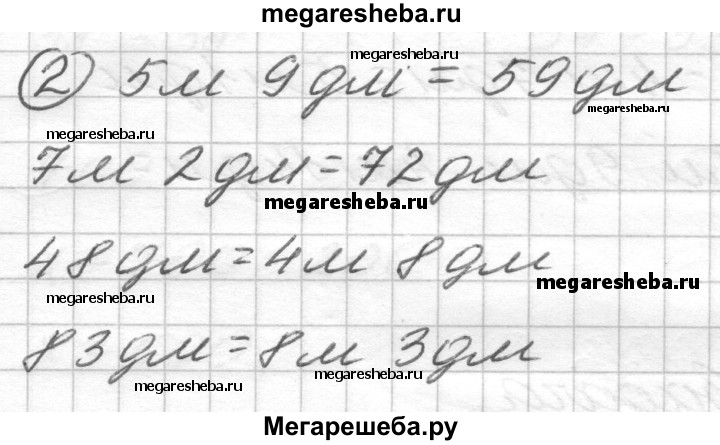 megaresheba.ru
megaresheba.ru
② 5м 9дм = 59дм
megaresheba.ru
megaresheba.ru
7м 2дм = 72дм
megaresheba.ru
48дм = 4м 8дм
megaresheba.ru
megaresheba.ru
83дм = 8м 3дм
megaresheba.ru
megaresheba.ru
Мегарешеба.ру